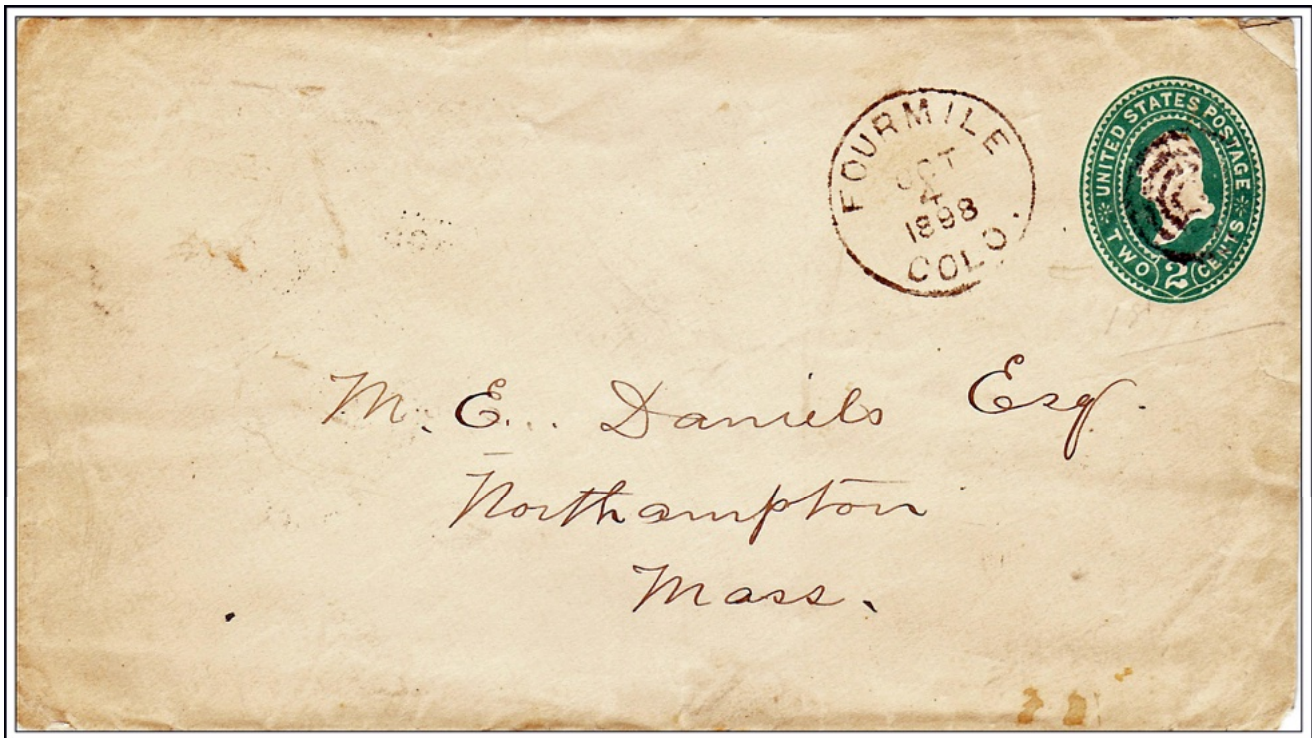 FOURMILE
OCT
4
1898
COLO.
UNITED STATES POSTAGE
TWO 2 CENTS
M. E. Daniels Esq.
Northampton
Mass.